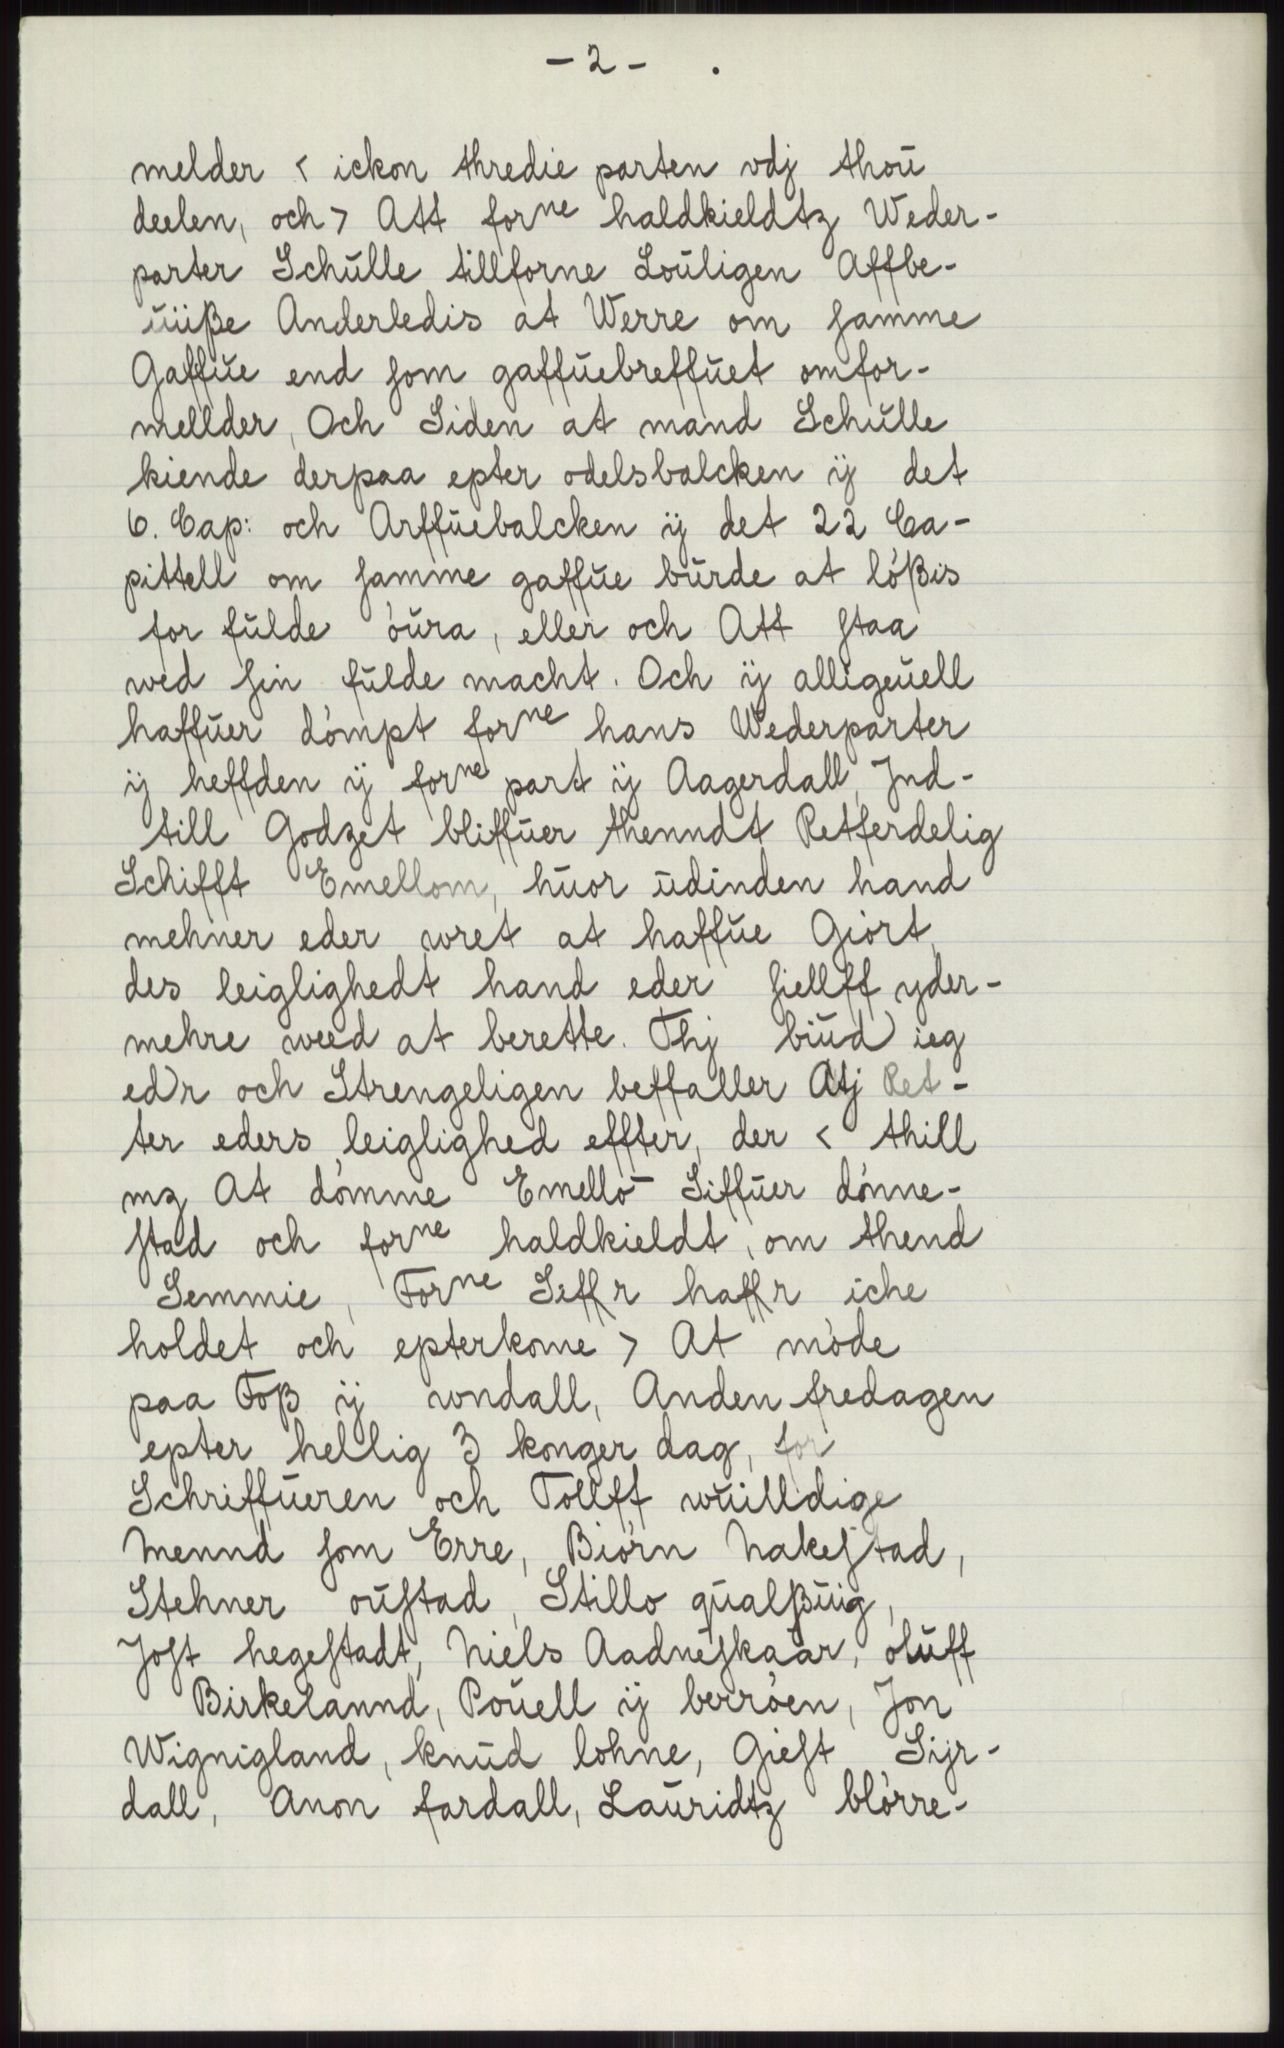 - 2 - .
melder < ickon thredie parten vdj thoŭ
deelen, och > Att forne haldkieldtz Weder-
parter Schŭlle tillforne Loŭligen Affbe-
ŭiiße Anderledis at Werre om samme
Gaffŭe end som gaffŭebreffŭet omfor-
mellder, Och Siden at mand Schŭlle
kiende derpaa epter odelsbalcken ÿ det
6. Cap: och Arffŭebalcken ÿ det 22 Ca-
pittell om samme gaffŭe bŭrde at lóßis
for fŭlde óŭra, eller och Att staa
wed sin fŭlde macht. Och ÿ alligeŭell
haffŭer dómpt forne hans Wederparter
ÿ heffden ÿ forne part ÿ Aagerdall, Jnd-
till Godzet bliffŭer thenndt Retferdelig
Schifft Emellom, hŭor ŭdinden hand
mehner eder wret at haffŭe Giórt,
des leiglighedt hand eder sielff yder-
mehre weed at berette. Thj biŭd ieg
ed)r och Strengeligen beffaller Atj Ret-
ter eders leiglighed effter, der < thill
mz At dómme Emello- Siffŭer dónne-
stad och forne haldkieldt, om thend
Semmie, Forne Seffr haffr iche
holdet och epterkome > At móde
paa Foß ÿ wndall, Anden fredagen
epter hellig 3 konger dag, for
Schriffŭeren och Tollff wŭilldige
Mennd som Erre, Biórn Nakestad,
Stehner oŭstad, Stillo qŭalßŭig,
Jost hegestadt, Niels Aadneskaar, olŭff
Birkelannd, Poŭell ÿ berróen, Jon
Wignigland, knŭd lohne, Giest Sijr-
dall, Anon fardall, Laŭridtz blórre-